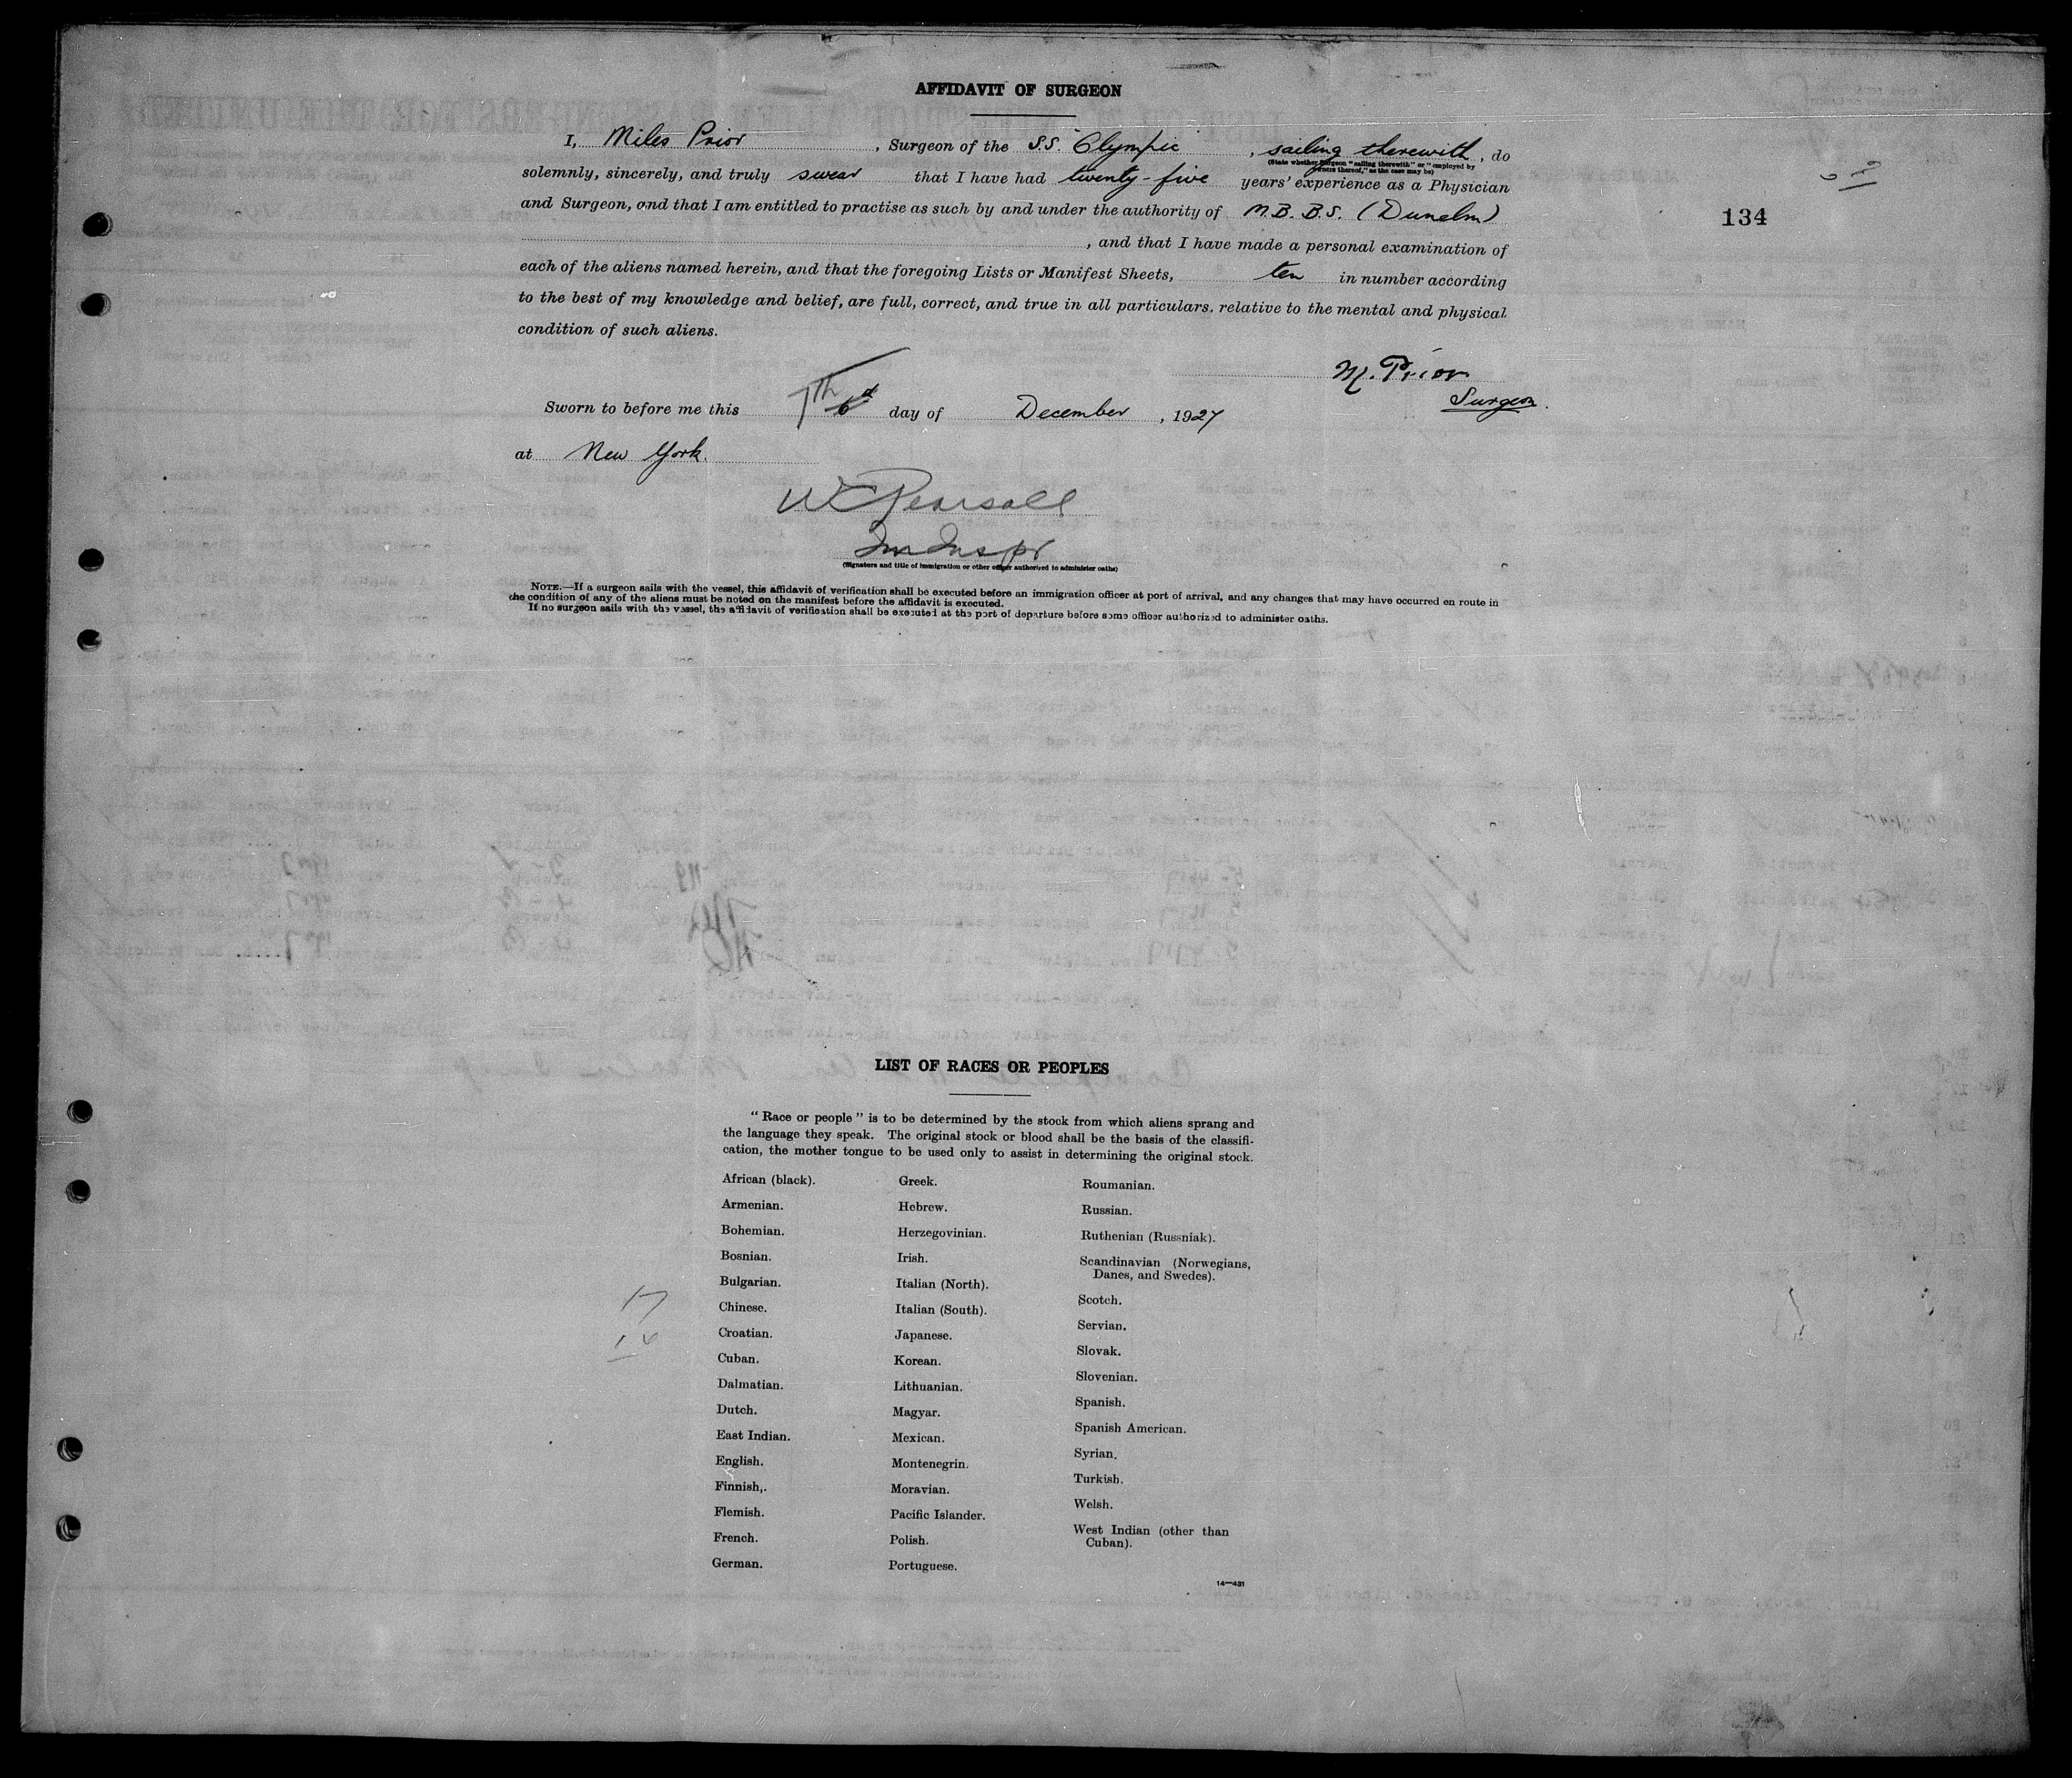 AFFIDAVIT OF SURGEON
I, Miles Prior, Surgeon of the S.S. "Olympic", sailing therewith, do
(State whether Surgeon "sailing therewith" or "employed by
owners thereof," as the case may be)
solemnly, sincerely, and truly swear that I have had twenty-five years' experience as a Physician
and Surgeon, and that I am entitled to practise as such by and under the authority of M.B. B.S. (Dunelm)
, and that I have made a personal examination of
each of the aliens named herein, and that the foregoing Lists or Manifest Sheets, ten in number according
to the best of my knowledge and belief, are full, correct, and true in all particulars, relative to the mental and physical
condition of such aliens.
134
M. Prior
Surgeon.
Sworn to before me this 7th day of December, 1927
at New York.
W Pearsall
Im Inspr
(Signature and title of immigration or other officer authorized to administer oaths)
NOTE.—If a surgeon sails with the vessel, this affidavit of verification shall be executed before an immigration officer at port of arrival, and any changes that may have occurred en route in
the condition of any of the aliens must be noted on the manifest before the affidavit is executed.
If no surgeon sails with the vessel, the affidavit of verification shall be executed at the port of departure before some officer authorized to administer oaths.
LIST OF RACES OR PEOPLES
"Race or people" is to be determined by the stock from which aliens sprang and
the language they speak. The original stock or blood shall be the basis of the classifi-
cation, the mother tongue to be used only to assist in determining the original stock.
African (black).
Armenian.
Bohemian.
Bosnian.
Bulgarian.
Chinese.
Croatian.
Cuban.
Dalmatian.
Dutch.
East Indian.
English.
Finnish,.
Flemish.
French.
German.
Greek.
Hebrew.
Herzegovinian.
Irish.
Italian (North).
Italian (South).
Japanese.
Korean.
Lithuanian.
Magyar.
Mexican.
Montenegrin.
Moravian.
Pacific Islander.
Polish.
Portuguese.
Roumanian.
Russian.
Ruthenian (Russniak).
Scandinavian (Norwegians,
Danes, and Swedes).
Scotch.
Servian.
Slovak.
Slovenian.
Spanish.
Spanish American.
Syrian.
Turkish.
Welsh.
West Indian (other than
Cuban).
14—431
17